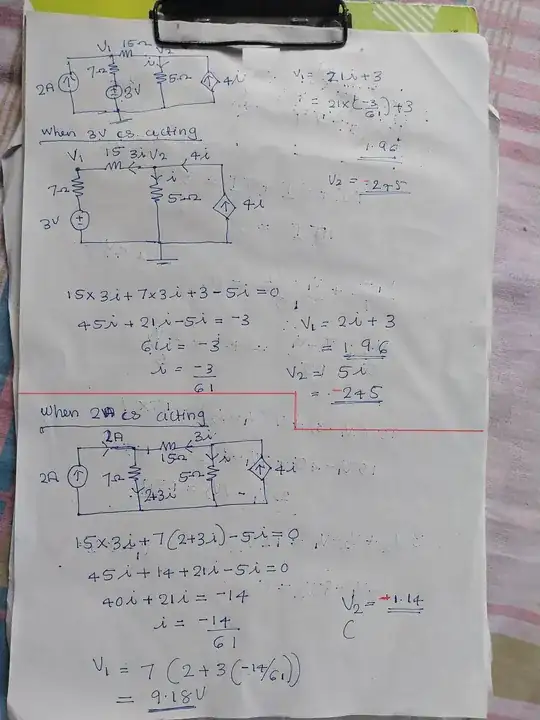 V₁ 15Ω V₂
7Ω i
2A 3V 5Ω 4i
V₁ = 21i+3
= 21×(-3/61)+3
1.96
V₂ = -245
When 3V is acting
V₁ 15 3i V₂ 4i
7Ω i
5Ω 4i
3V
15×3i+7×3i+3-5i=0
45i+21i-5i=-3
61i=-3
i = -3/61
V₁ = 2i+3
= 1.9.6
V₂ = 5i
= -245
When 2A is acting
2A 3i
15Ω i
2A 7Ω 5Ω 4i
2+3i
15×3i+7(2+3i)-5i=0
45i+14+21i-5i=0
40i+21i=-14
i = -14/61
V₂ = +1.14
(
V₁ = 7(2+3(-14/61))
= 9.18V